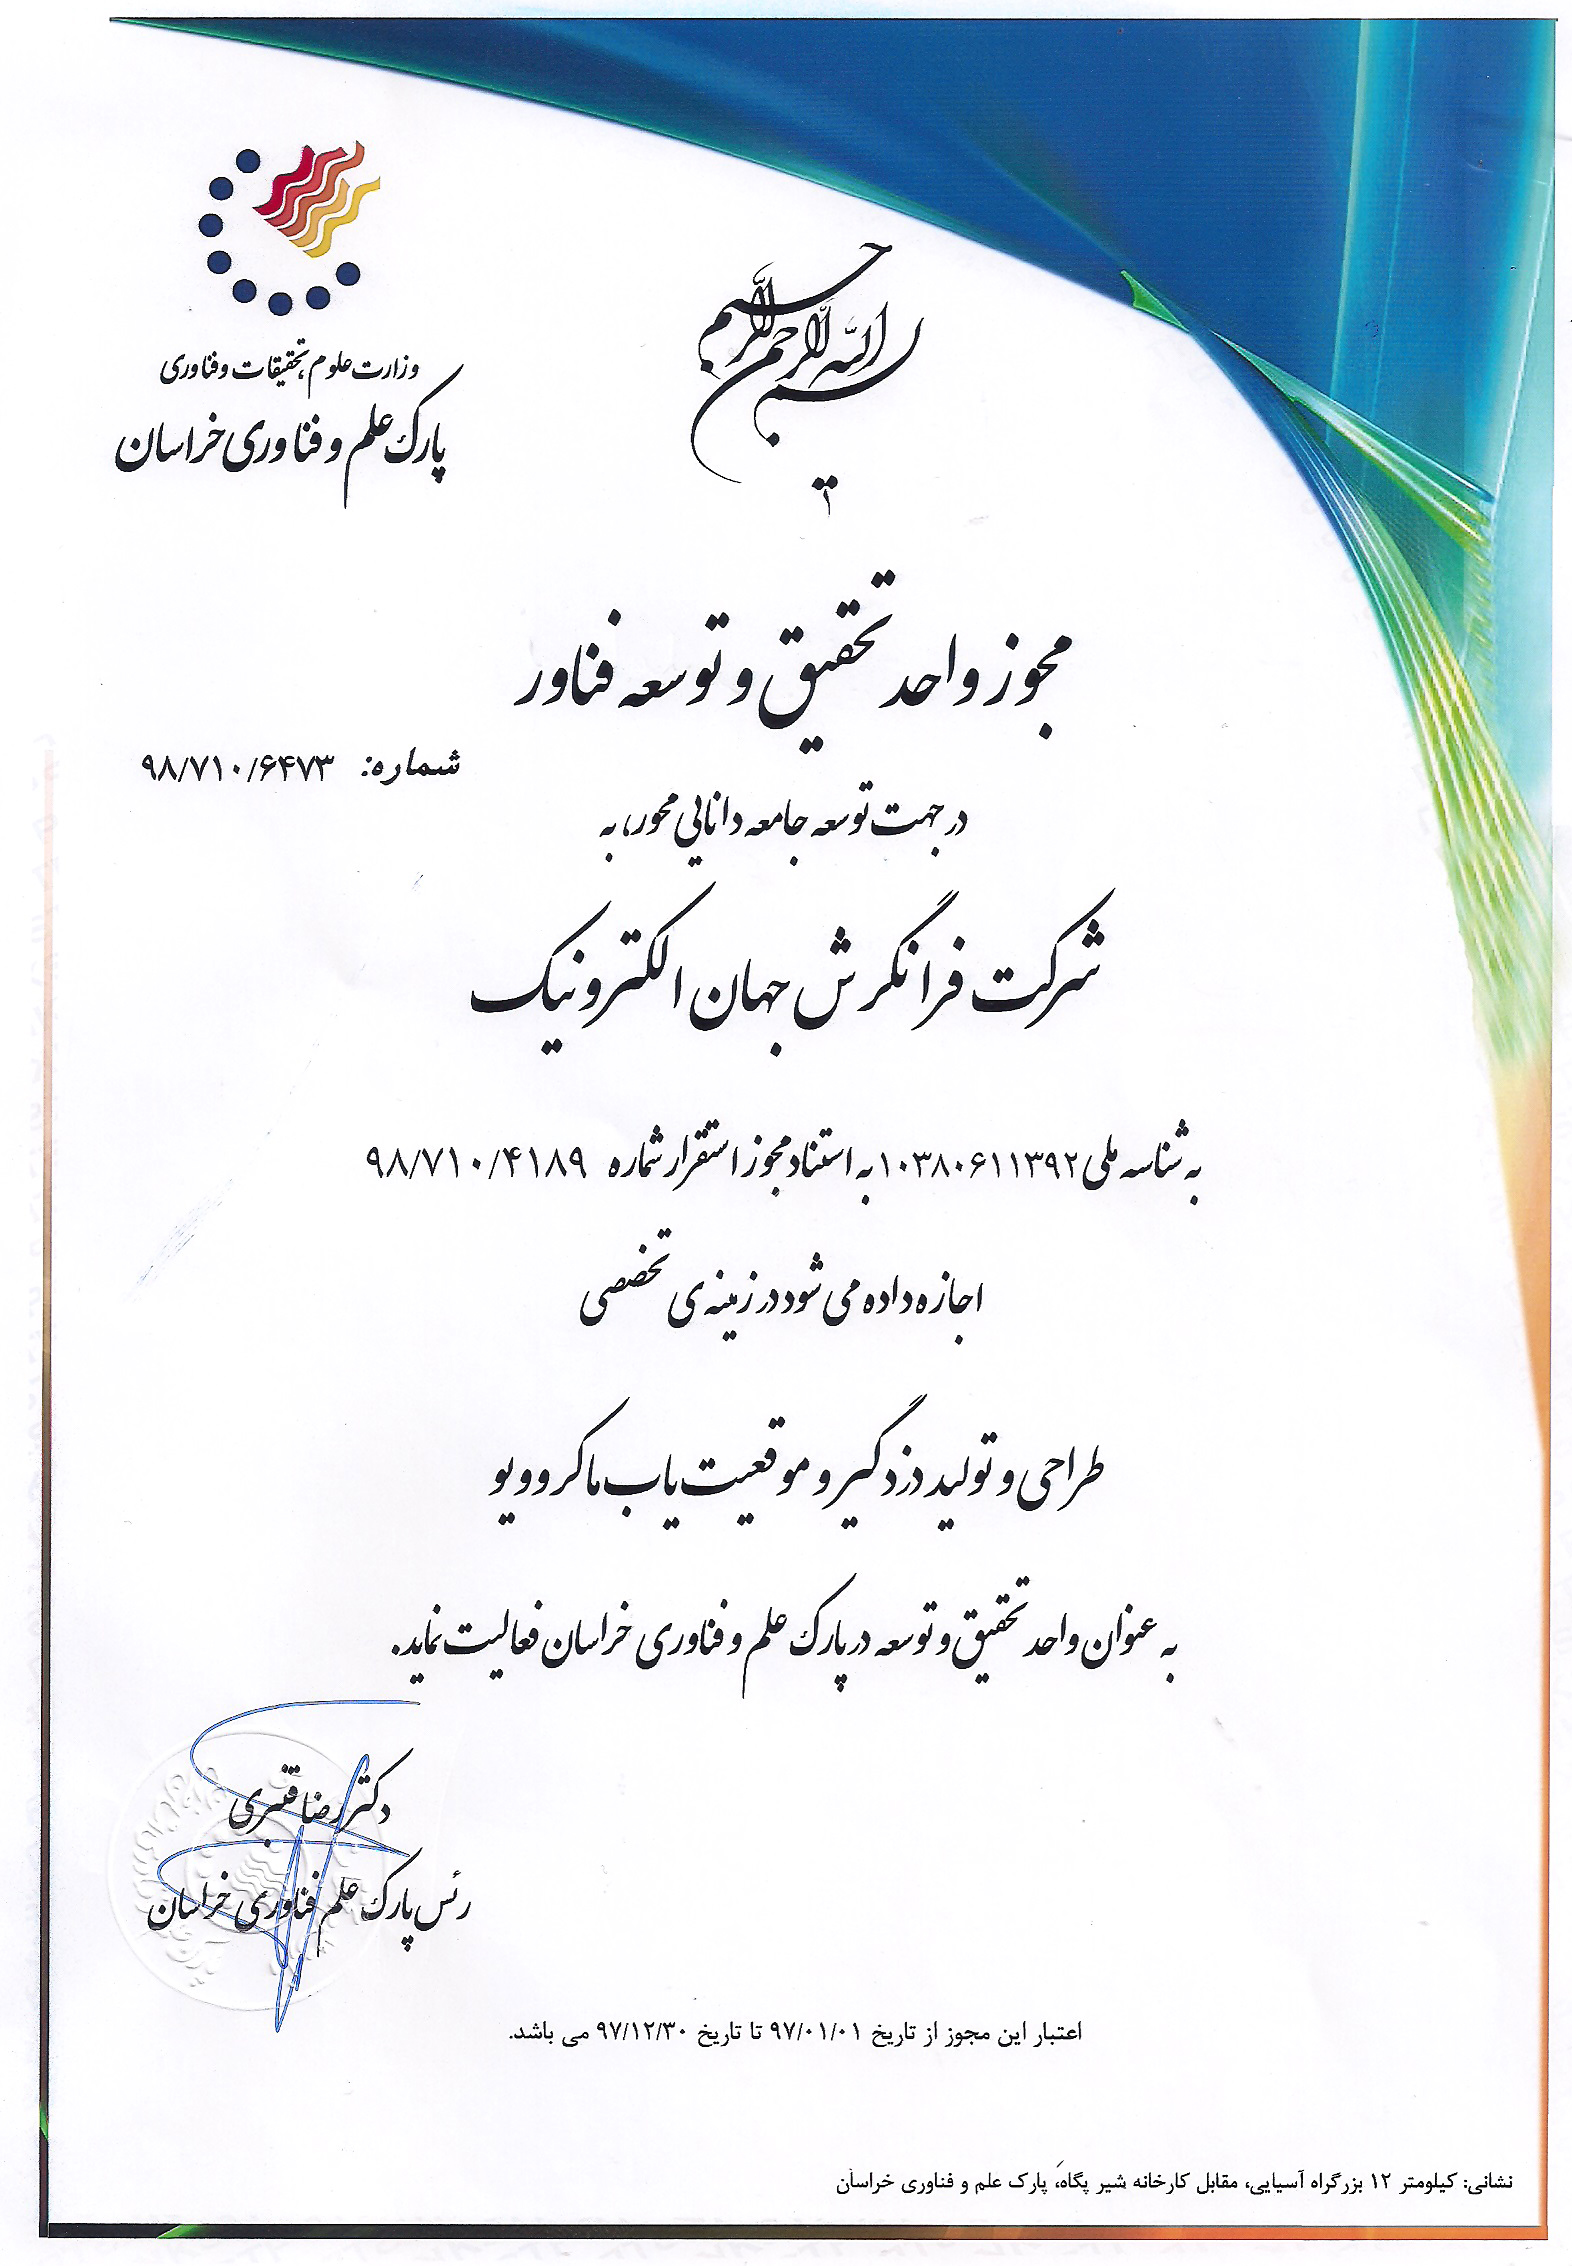 بسم الله الرحمن الرحیم
وزارت علوم، تحقیقات و فناوری
پارک علم و فناوری خراسان
مجوز واحد تحقیق و توسعه فناور
شماره: ۹۸/۷۱۰/۶۴۷۳
در جهت توسعه جامعه دانایی محور، به
شرکت فرانگرش جهان الکترونیک
به شناسه ملی ۱۰۳۸۰۶۱۱۳۹۲ به استناد مجوز استقرار شماره ۹۸/۷۱۰/۴۱۸۹
اجازه داده می شود در زمینه ی تخصصی
طراحی و تولید دزدگیر و موقعیت یاب ماکروویو
به عنوان واحد تحقیق و توسعه در پارک علم و فناوری خراسان فعالیت نماید.
دکتر رضا قنبری
رئس پارک علم فناوری خراسان
اعتبار این مجوز از تاریخ ۹۷/۰۱/۰۱ تا تاریخ ۹۷/۱۲/۳۰ می باشد.
نشانی: کیلومتر ۱۲ بزرگراه آسیایی، مقابل کارخانه شیر پگاه، پارک علم و فناوری خراسان